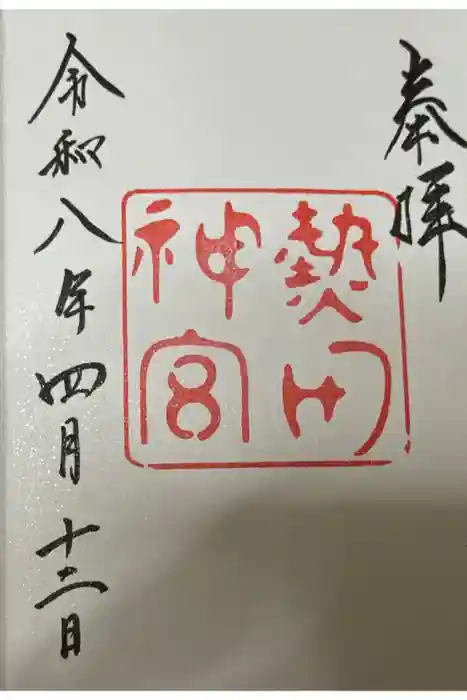 奉拝
熱田
神宮
令和八年四月十二日